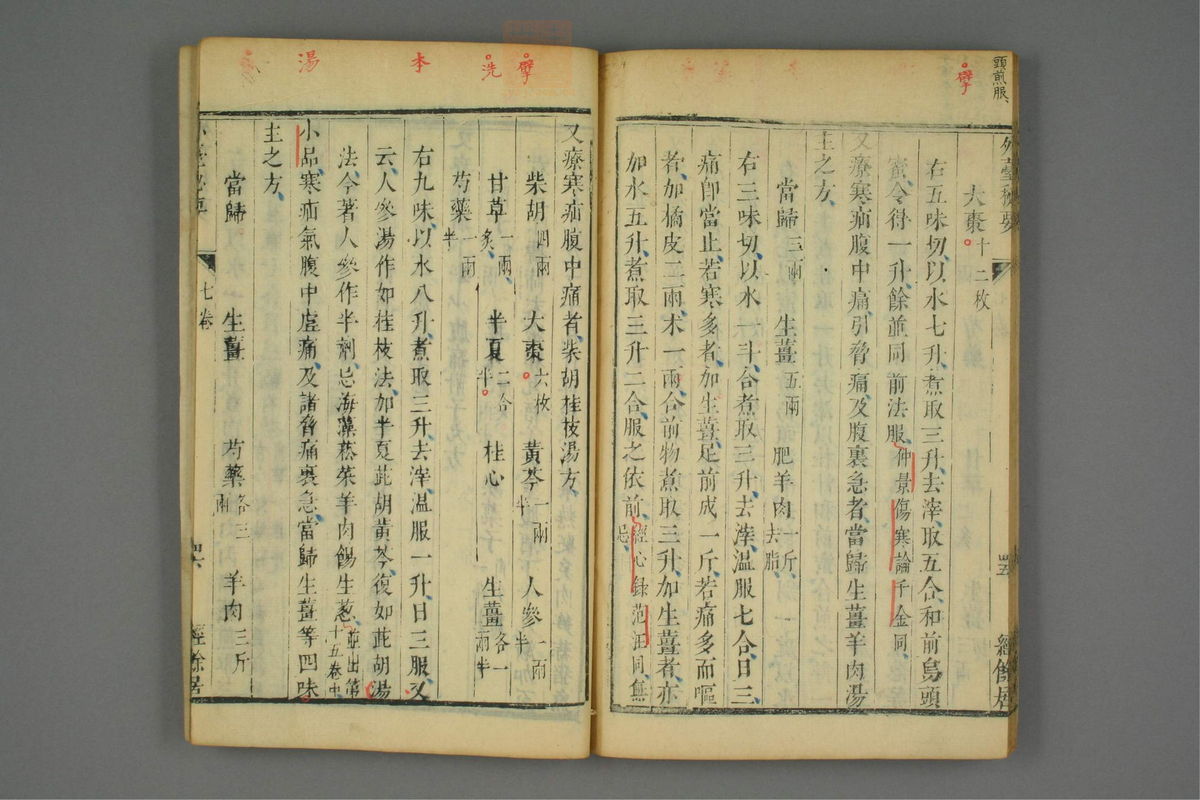 頭煎服
擘
大棗十二枚
右五味切以水七升煮取三升去滓取五合和前烏頭
蜜令得一升餘並同前法服仲景傷寒論千金同
又療寒疝腹中痛引脅痛及腹裏急者當歸生薑羊肉湯
主之方
當歸三兩 生薑五兩 肥羊肉一斤去脂
右三味切以水一斗合煮取三升去滓溫服七合日三
痛即當止若寒多者加生薑足前成一斤若痛多而嘔
者加橘皮二兩朮一兩合前物煮取三升加生薑者亦
加水五升煮取三升二合服之依前經心録范汪同無忌
擘
洗
本
湯
又療寒疝腹中痛者柴胡桂枝湯方
柴胡四兩 大棗六枚 黃芩一兩半 人參一兩半
甘草一兩炙 半夏二合半 桂心 生薑各一兩半
芍藥一兩半
右九味以水八升煮取三升去滓溫服一升日三服又
云人參湯作如桂枝法加半夏茈胡黃芩復如茈胡湯
法今著人參作半劑忌海藻菘菜羊肉餳生葱並出第十五卷中
小品寒疝氣腹中虛痛及諸脅痛裏急當歸生薑等四味
主之方
當歸 生薑 芍藥各三兩 羊肉三斤
七卷
四六
經餘居